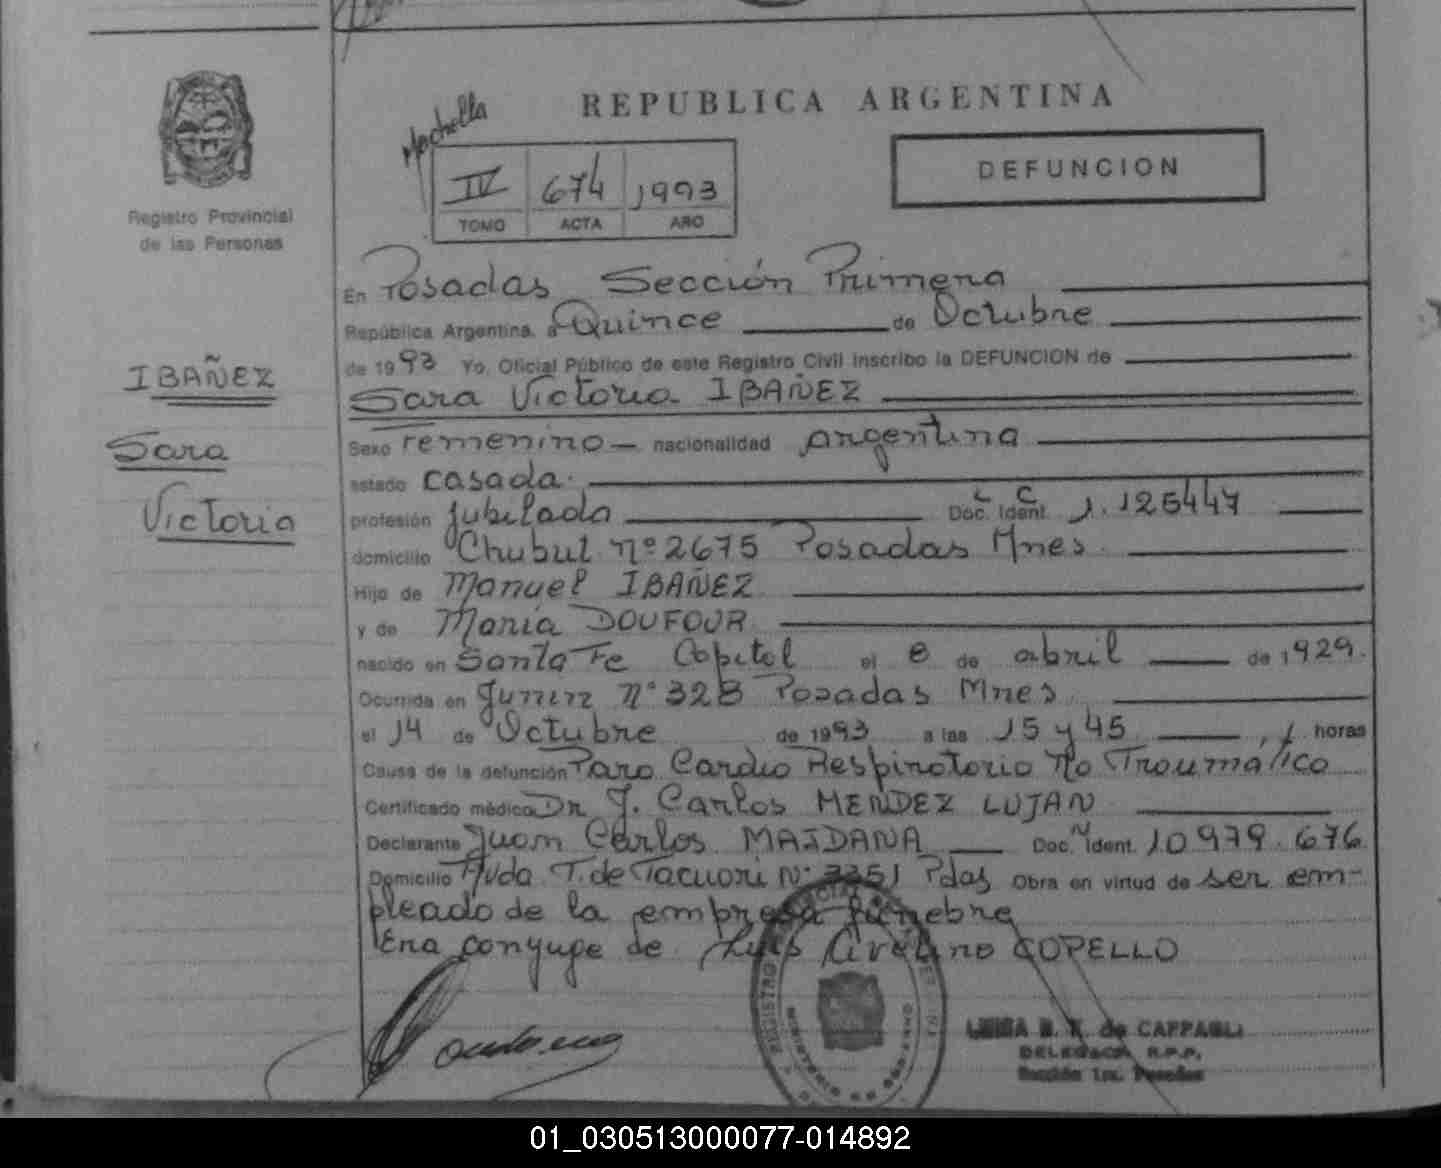 REPUBLICA ARGENTINA
Mochella
IV 674 1993
TOMO ACTA AÑO
DEFUNCION
Registro Provincial
de las Personas
IBAÑEZ
Sara
Victoria
En Posadas Sección Primera
República Argentina, a Quince de Octubre
de 1993 Yo, Oficial Público de este Registro Civil inscribo la DEFUNCION de
Sara Victoria IBAÑEZ
Sexo Femenino nacionalidad argentina
estado casada.
profesión jubilada Doc. Ident. L C 1.125447
domicilio Chubut nº 2675 Posadas Mnes.
Hijo de Manuel IBAÑEZ
y de María DOUFOUR
nacido en Santa Fe Capital el 8 de abril de 1929.
Ocurrida en Junin Nº 328 Posadas Mnes
el 14 de Octubre de 1993 a las 15 y 45 horas
Causa de la defunción Paro Cardio Respiratorio No Traumático
Certificado médico Dr J. Carlos MENDEZ LUJAN
Declarante Juan Carlos MAIDANA Doc. N Ident. 10979.676
Domicilio Avda T. de Tacuari Nº 3351 Pdas Obra en virtud de ser em-
pleado de la empresa fúnebre
Era conyuge de Luis Avelino COPELLO
DELEGADA R.P.P.
Sección 1ra. Posadas
01_030513000077-014892